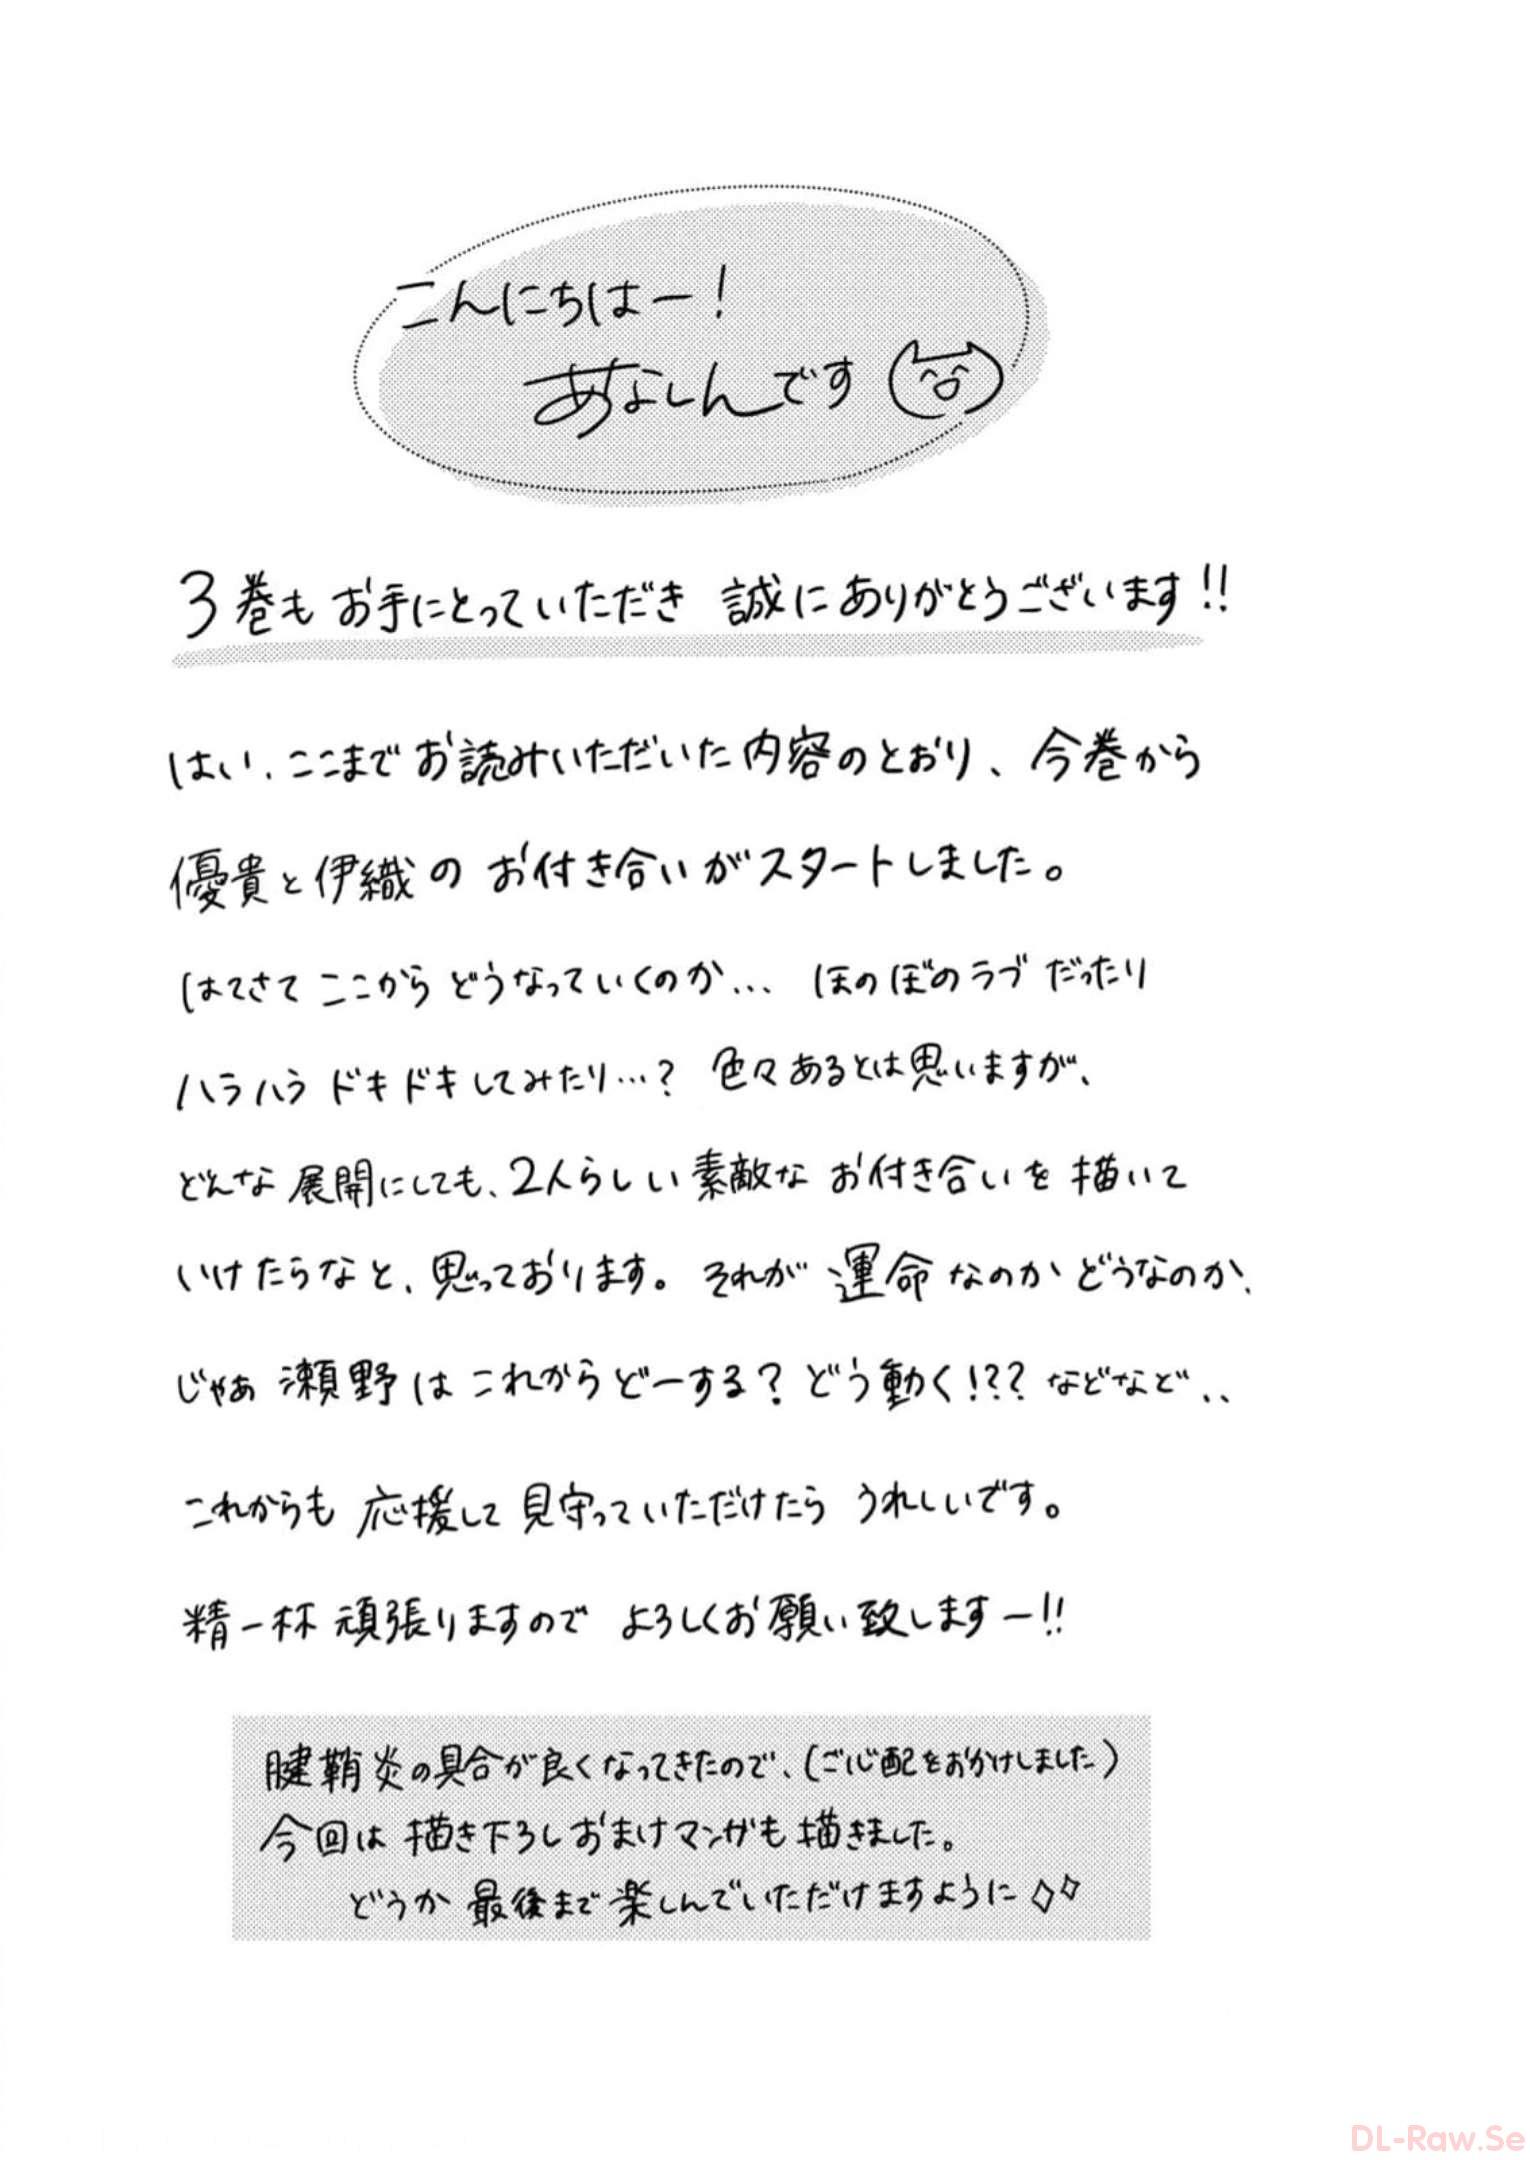 こんにちはー!
あなしんです
3巻も お手にとっていただき 誠にありがとうございます!!
はい、ここまでお読みいただいた内容のとおり、今巻から
優貴と伊織の お付き合いがスタートしました。
はてさて ここから どうなっていくのか... ほのぼのラブ だったり
ハラハラ ドキドキしてみたり…? 色々あるとは思いますが、
どんな展開にしても、2人らしい素敵な お付き合いを 描いて
いけたらなと、思っております。それが 運命なのか どうなのか、
じゃあ 瀬野は これからどーする? どう動く!?? などなど..
これからも 応援して 見守っていただけたら うれしいです。
精一杯 頑張りますので よろしくお願い致しますー!!
腱鞘炎の具合が良くなってきたので、(ご心配をおかけしました)
今回は 描き下ろしおまけマンガも 描きました。
どうか 最後まで楽しんでいただけますように◇◇
DL-Raw.Se